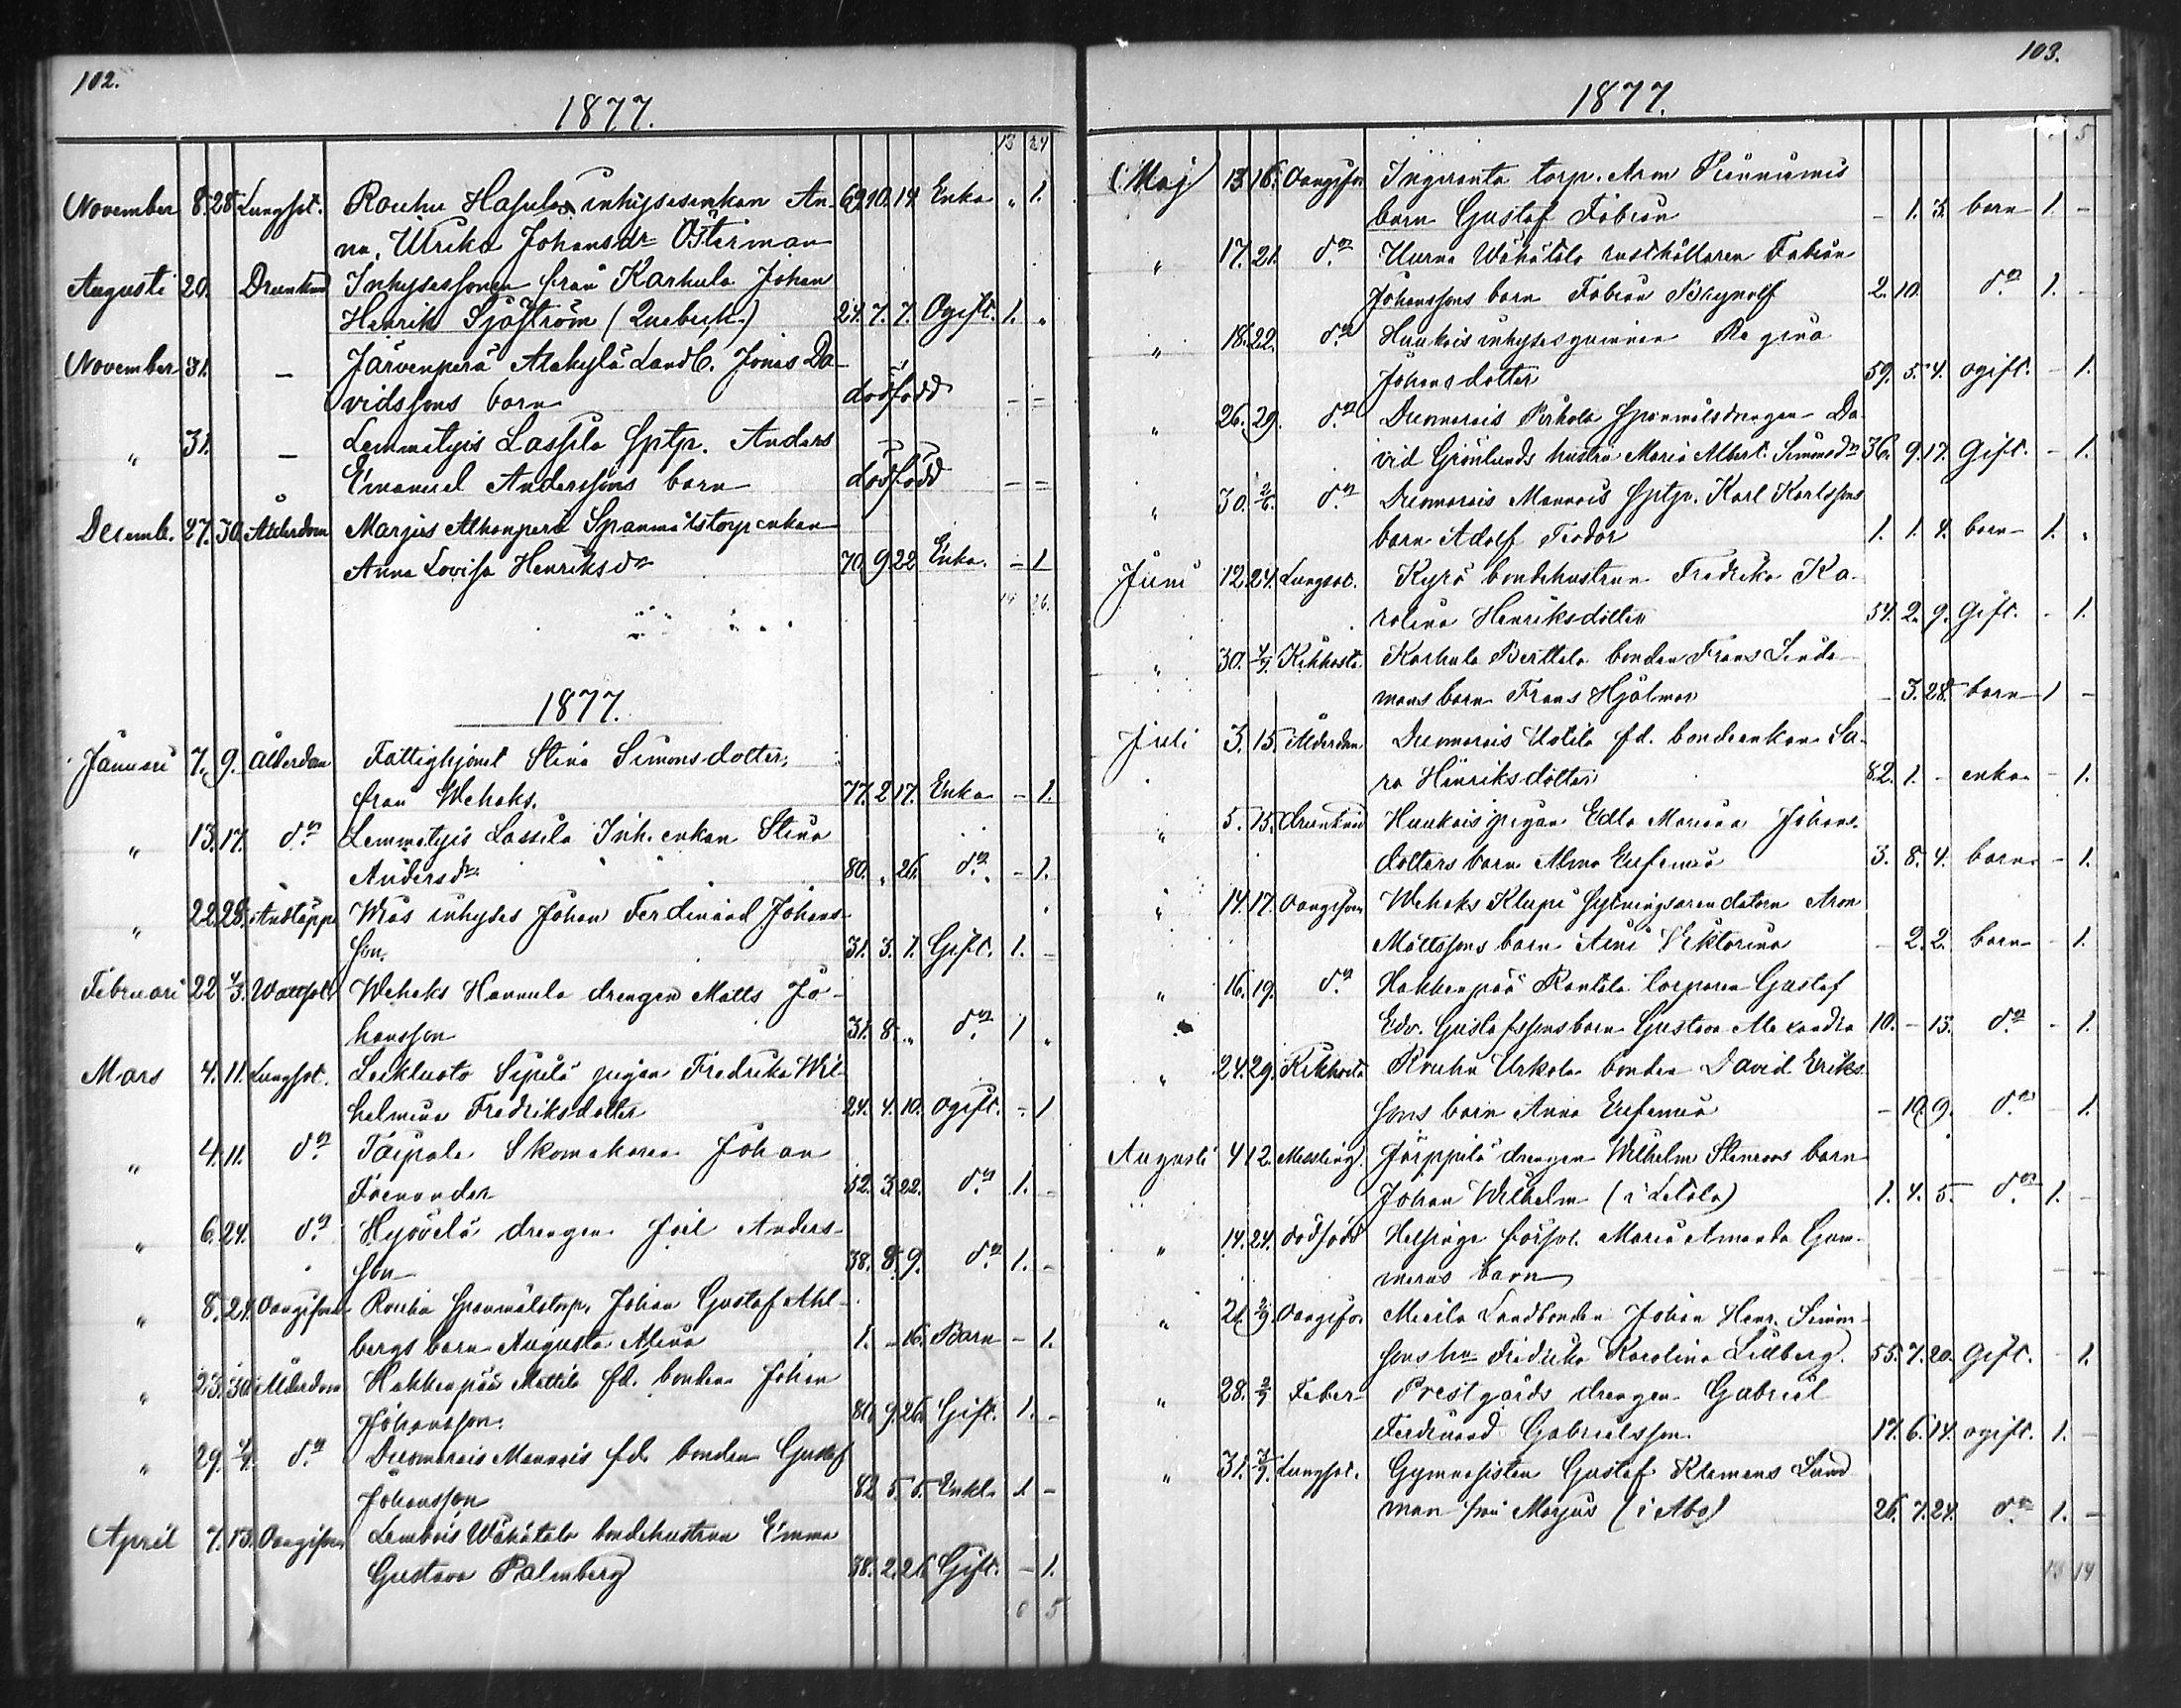 102.
1877.
13 24
November 8. 28. Lungsot. Rouhu Hasula inhysesenkan An- 69 10. 14. Enka " 1.
na, Ulrika Johansdr Österman
Augusti 20. Drunknad Inhysessonen från Karhula Johan
Henrik Sjöström 24. 7. 7. Ogift. 1. "
November 31. — Järvenperä Alakylä Landb. Jonas Da-
vidssons barn dödfödd — —
" 31. — Lemmetyis Lassila Sptp. Anders
Emanuel Anderssons barn dödfödd — —
Decemb. 27. 30. Ålderdom Marjus Alhonperä Spanmålstorpenkan
Anna Lovisa Henriksdr 70 9 22 Enka. — 1
14 26.
1877.
Januari 7. 9. Ålderdom Fattighjonet Stina Simonsdotter,
från Wehaks. 77. 2 17. Enka — 1.
" 13. 17. do Lemmetyis Lassila Inh. enkan Stina
Andersdr 80. " 26. do — 1.
" 22. 28. Andtäppa inhyses Johan Ferdinand Johans-
son. 31. 3. 1. Gift. 1. —
Februari 22 4/3. Wattsot Wehaks Hannula drengen Matts Jo-
hansson 31. 8. " do 1 "
Mars 4. 11. Lungsot. Leikluoto Sipilä pigan Fredrika Wil-
helmina Fredriksdotter 24. 4. 10. ogift. — 1
" 4. 11. do Taipale Skomakaren Johan
Forsander 52. 3. 22. do 1. —
" 6. 24. do Hyövelä drengen Joel Anders-
son 38. 8. 9. do 1. —
" 8. 21. Oangifven Rouhu Spanmålstorp. Johan Gustaf Ahl-
bergs barn Augusta Alina 1. — 16. Barn — 1.
" 23. 30. Ålderdom Hakkenpää Mattila fd. bonden Johan
Johansson. 80. 9. 26. Gift. 1. —
" 29. 4/4. do Duomarais Mannois fd. bonden Gustaf
Johansson 82 5. 5. Enkl. 1 —
April 7. 13. Oangifven Lembois Wähätalo bondehustrun Emma
Gustava Palmberg 38. 2. 26. Gift. — 1.
6 5
103.
1877.
5
Maj 13. 16. Oangifven Ingeranta torp. Arm
barn Gustaf Fabian — 1. 3. barn 1. —
" 17. 21. do Wähätalo rusthållaren Fabian
Johanssons barn Fabian Brynolf 2. 10. do 1. —
" 18. 22. do Haukois inhysesqvinnan Regina
Johansdotter 59. 5. 4. ogift. — 1.
" 26. 29. do Duomarais Pirkola Spanmålsdrengen Da-
vid Grönlunds hustru Maria Albert. Simonsdr 36. 9. 17. Gift. — 1.
" 30. 2/6. do Duomarais Mannois Sptp. Karl Karlssons
barn Adolf Teodor 1. 1. 4. barn 1. "
Juni 12. 24. Lungsot. Kyrö bondehustrun Fredrika Ka-
rolina Henriksdotter 54. 2. 9. Gift. — 1.
" 30. 4/7. Kikhosta Karhula Berttala bonden Frans Linde-
mans barn Frans Hjalmar — 3. 28. barn 1 —
Juli 3. 15. Ålderdom Duomarais Uotila fd. bondeenkan Sa-
ra Henriksdotter 82. 1. — enka — 1.
" 5. 15. drunknad Haukois pigan Edla Maria Johans-
dotters barn Alma Eufemia 3. 8. 4. barn — 1.
" 14. 17. Oangifven Wehaks Klupi Sytningsarendatorn Aron
Mattssons barn Aini Viktorina — 2. 2. barn — 1.
" 16. 19. do Hakkenpää Rantala torparen Gustaf
Edv. Gustafssons barn Gustava Alexandra 10. — 13. do — 1.
" 24. 29. Kikhosta Rouhu Urkola bonden David Eriks-
sons barn Anna Eufemia — 10. 9. do — 1.
Augusti 4 12. Messling Järppilä drengen Wilhelm Stenroos barn
Johan Wilhelm (i Letala) 1. 4. 5. do 1. —
" 14. 24. dödfödd Helsinge försml. Maria Amanda Gum-
merus barn — —
" 21. 2/9. Oangifv. Mieila Landbonden Johan Henr. Simon-
sons hu Fredrika Karolina Lillberg. 55. 7. 20. Gift. — 1.
" 28. 2/9 Feber Prestgårds drengen Gabriel
Ferdinand Gabrielsson. 17. 6. 14. ogift. 1. —
" 31. 7/9. Lungsot. Gymnasisten Gustaf Klemens Lind-
man från Marjus (i Åbo) 26. 7. 24. do 1. —
13 14